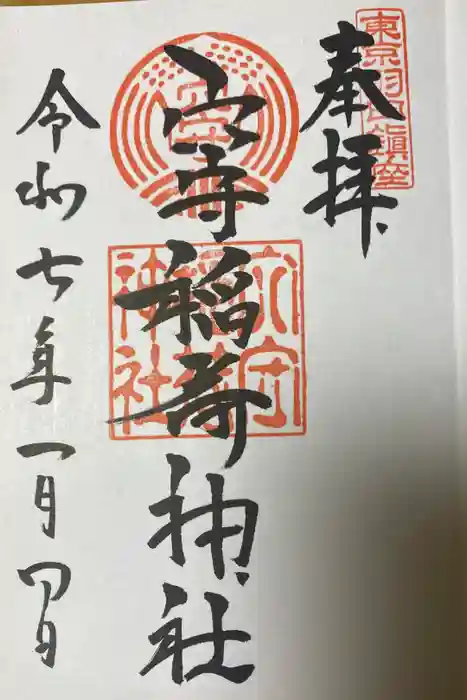 東京羽田鎮座
奉拝
穴守稲荷神社
穴守稲荷神社
令和七年一月四日